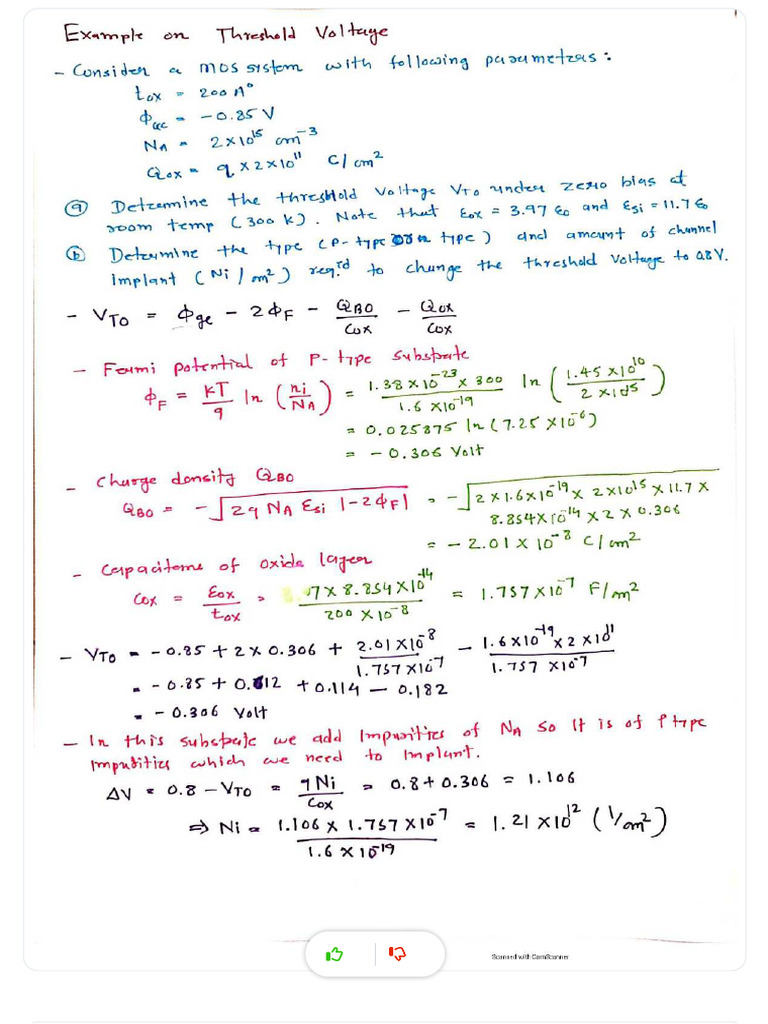 Example on Threshold Voltage
- Consider a MOS system with following parameters:
tox = 200 A°
ϕGC = -0.85 V
NA = 2×10^15 cm^-3
Qox = q×2×10^11 C/cm^2
(a) Determine the threshold voltage VTO under zero bias at
room temp (300 K). Note that εox = 3.97 ε0 and εsi = 11.7 ε0
(b) Determine the type (P-type or n type) and amount of channel
implant (Ni/cm^2) req'd to change the threshold voltage to 0.8 V.
- VTO = ϕgc - 2ϕF - QBO/Cox - Qox/Cox
- Fermi potential of P-type substrate
ϕF = KT/q ln (ni/NA) = 1.38×10^-23 × 300 / 1.6×10^-19 ln (1.45×10^10 / 2×10^15)
= 0.025875 ln (7.25×10^-6)
= -0.306 Volt
- Charge density QBO
QBO = -√(2q NA Esi |-2ϕF|) = -√(2×1.6×10^-19 × 2×10^15 × 11.7 ×
8.854×10^14 × 2 × 0.306
= -2.01×10^-8 C/cm^2
- Capacitome of oxide layer
Cox = εox/tox = 7×8.854×10^-14 / 200×10^-8 = 1.757×10^-7 F/m^2
- VTO = -0.85 + 2×0.306 + 2.01×10^-8 / 1.757×10^-7 - 1.6×10^-19 × 2×10^11 / 1.757×10^-7
= -0.85 + 0.612 + 0.114 - 0.182
= -0.306 Volt
- In this substrate we add impurities of NA so it is of P type
impurities which we need to implant.
ΔV = 0.8 - VTO = qNi/Cox = 0.8 + 0.306 = 1.106
⇒ Ni = 1.106 × 1.757×10^-7 / 1.6×10^-19 = 1.21×10^12 (1/cm^2)
Scanned with CamScanner